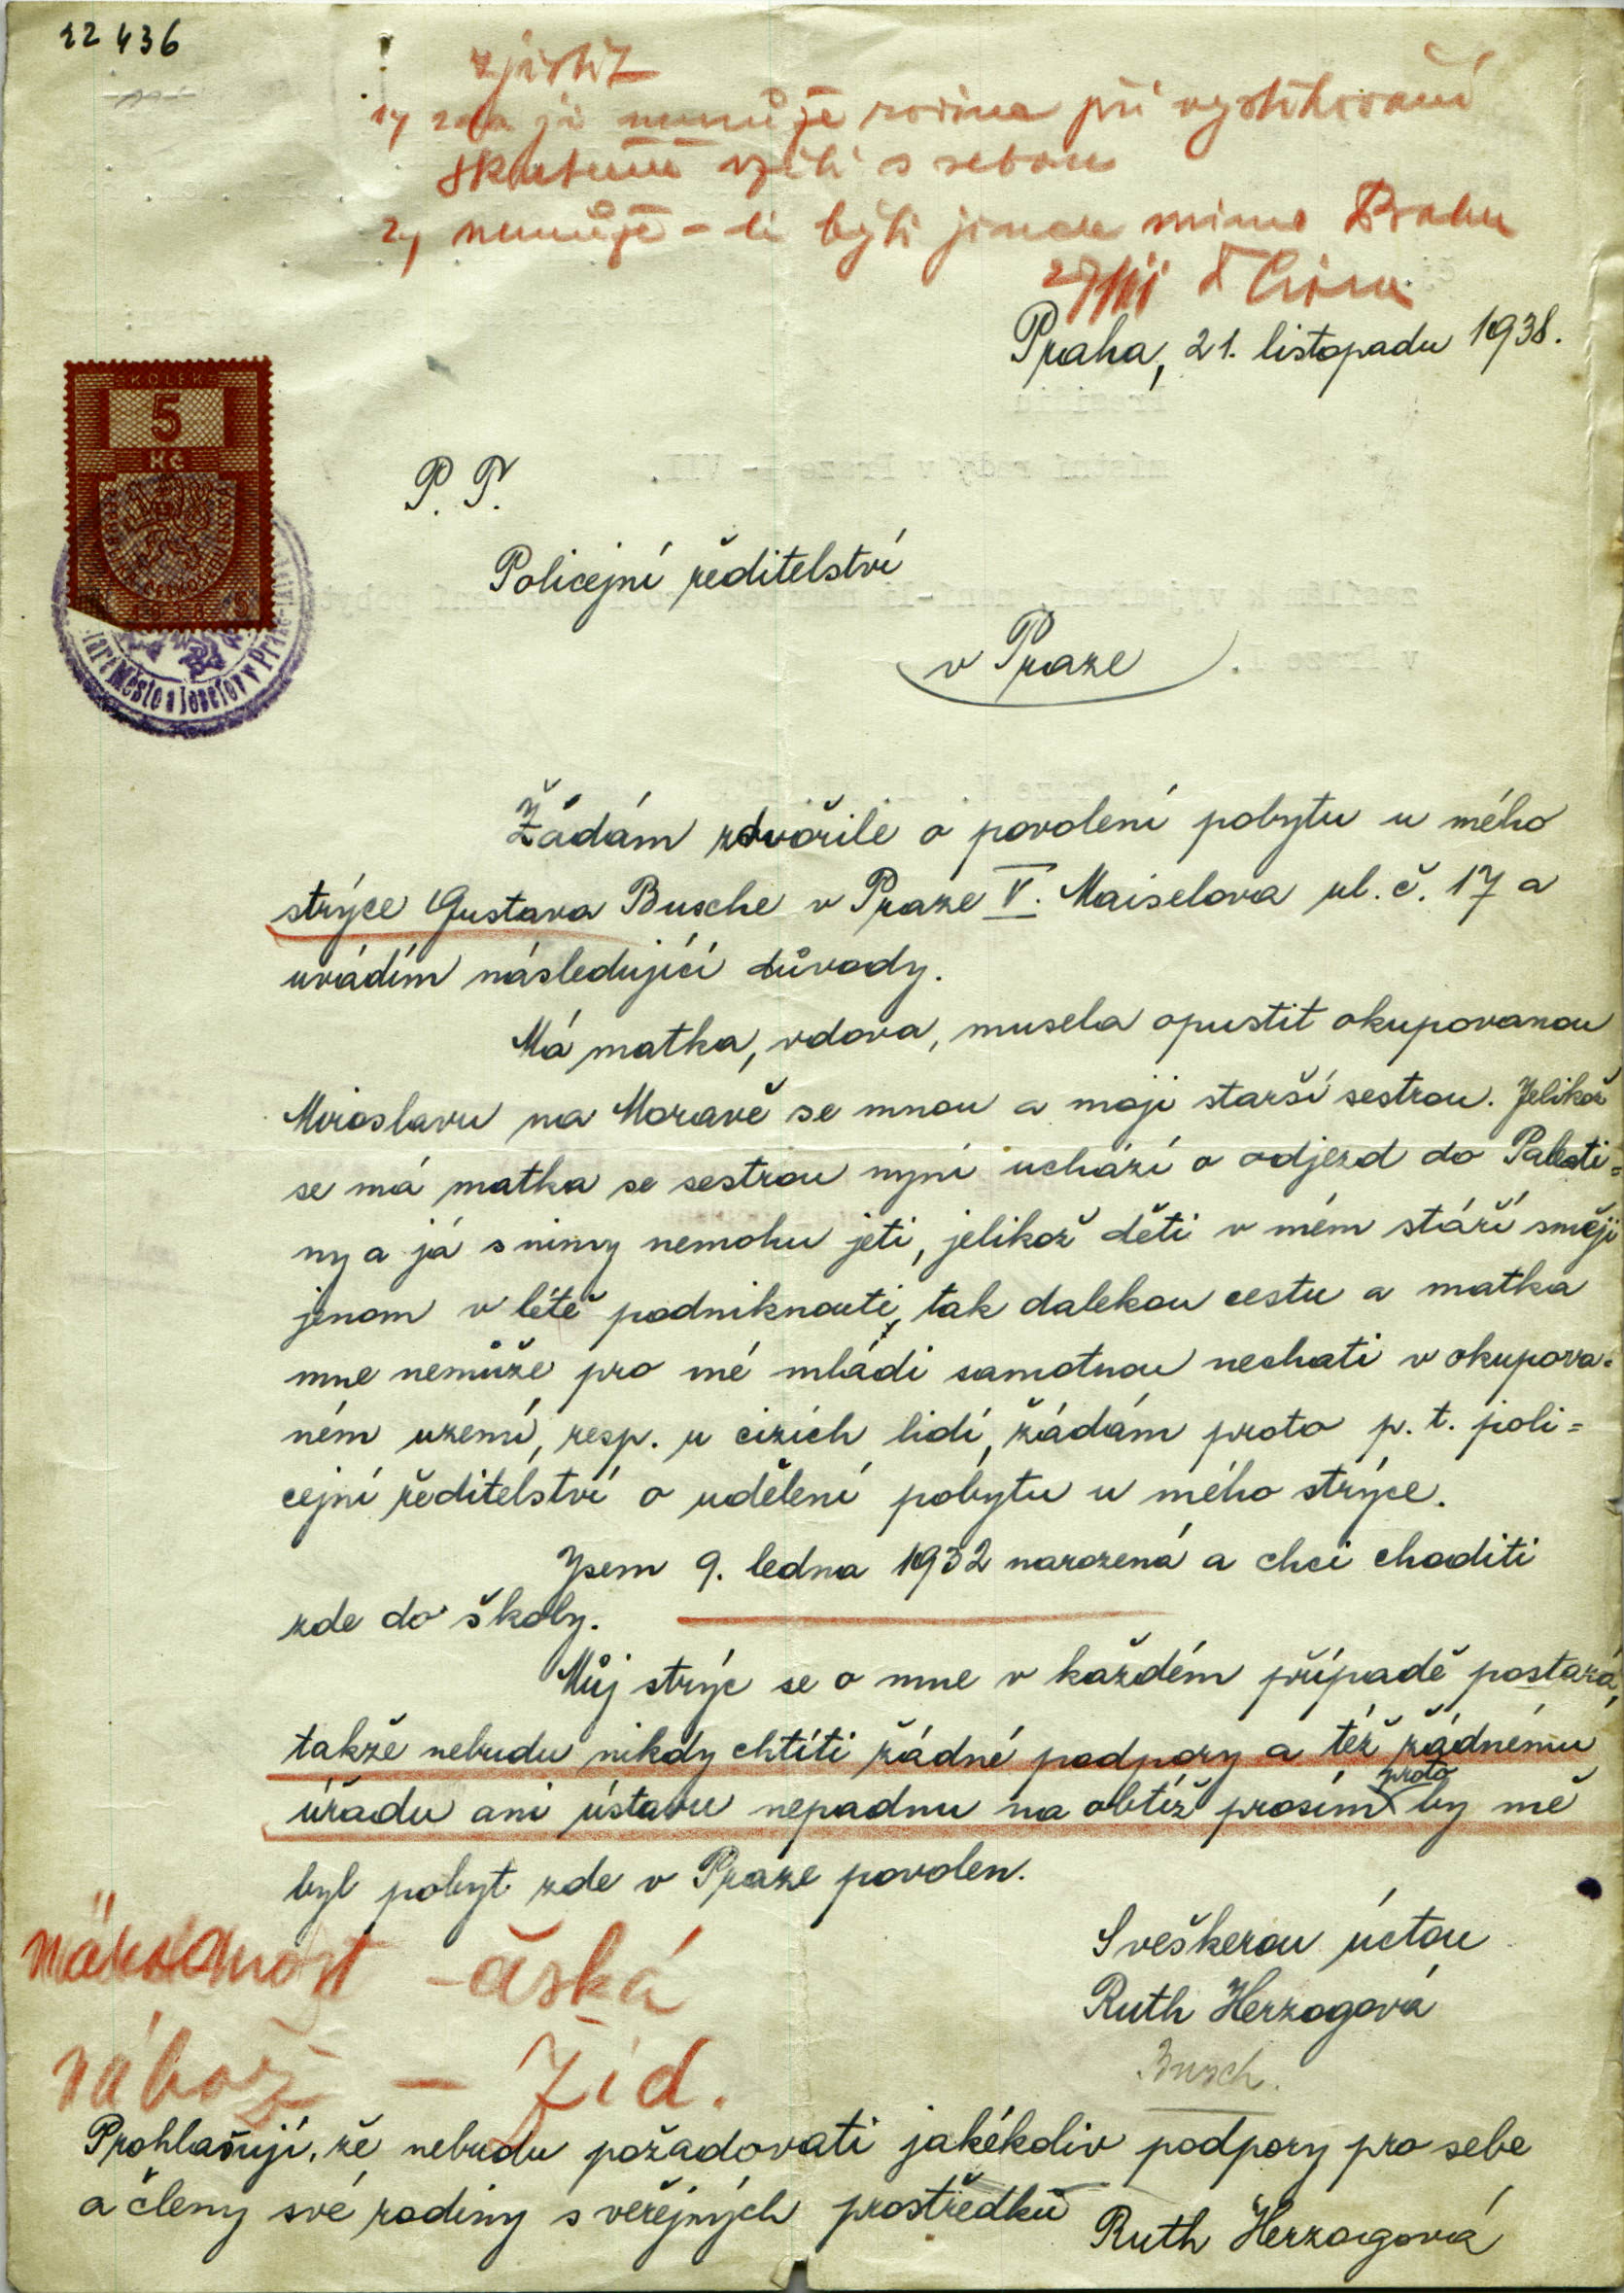 22 436
zjistit
1) zda ji nemůže rodina při vystěhování
skutečně vzíti s sebou
2) nemůže-li býti jinde mimo Prahu
Praha, 21. listopadu 1938.
KOLEK
5
Kč
Staré Město a Josefov v Praze
P. T.
Policejní ředitelství
v Praze
Žádám zdvořile o povolení pobytu u mého
strýce Gustava Busche v Praze V. Maiselova ul. č. 17 a
uvádím následující důvody.
Má matka, vdova, musela opustit okupovanou
Miroslavu na Moravě se mnou a moji starší sestrou. Jelikož
se má matka se sestrou nyní uchází o odjezd do Palesti=
ny a já s nimy nemohu jeti, jelikož děti v mém stáří smějí
jenom v létě podniknouti, tak dalekou cestu a matka
mne nemůže pro mé mládí samotnou nechati v okupova=
ném uzemí, resp. u cizích lidí, žádám proto p. t. poli=
cejní ředitelství o udělení pobytu u mého strýce.
Jsem 9. ledna 1932 narozená a chci choditi
zde do školy.
Můj strýc se o mne v každém případě postará,
takže nebudu nikdy chtíti žádné podpory a též žádnému
úřadu ani ústavu nepadnu na obtíž prosím proto by mě
byl pobyt zde v Praze povolen.
S veškerou úctou
Ruth Herzogová
Busch.
národnost - česká
nábož - žid.
Prohlašuji, že nebudu požadovati jakékoliv podpory pro sebe
a členy své rodiny s veřejných prostředků
Ruth Herzogová